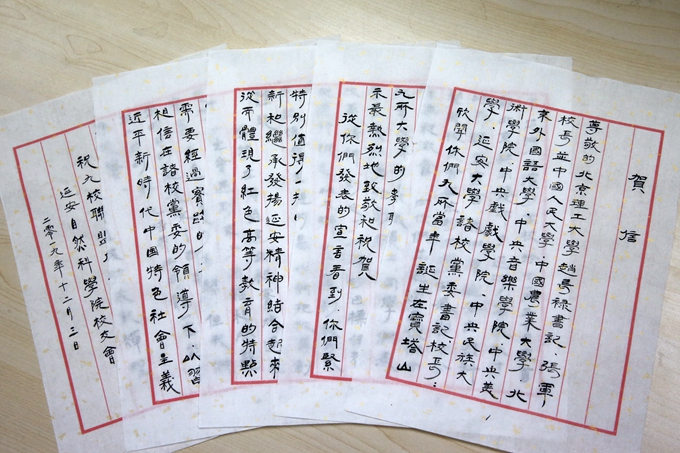 賀信
尊敬的北京理工大學趙長禄書記、張軍
校長並中國人民大學、中國農業大學、北
京外國語大學、中央音樂學院、中央美
術學院、中央戲劇學院、中央民族大
學、延安大學諸校黨委書記、校長:
欣聞你們九所當年誕生在寶塔山
九所大學的
示最熱烈地致敬和祝賀
從你們發表的宣言看到,你們緊
特別值得一
新和繼承發揚延安精神結合起來
從而體現了紅色高等教育的特點
需要經過實踐的
相信在諸校黨委的領導下以習
近平新時代中國特色社會主義
祝九校聯盟
延安自然科學院校友會
二零一九年十二月三日